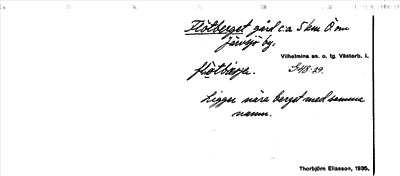 Flötberget gård c:a 5 km Ö om
Järvsjö by.
Vilhelmina sn. o. tg. Västerb. l.
flötbärje. 348.29.
Ligger nära berget med samma
namn.
Thorbjörn Eliasson, 1935.